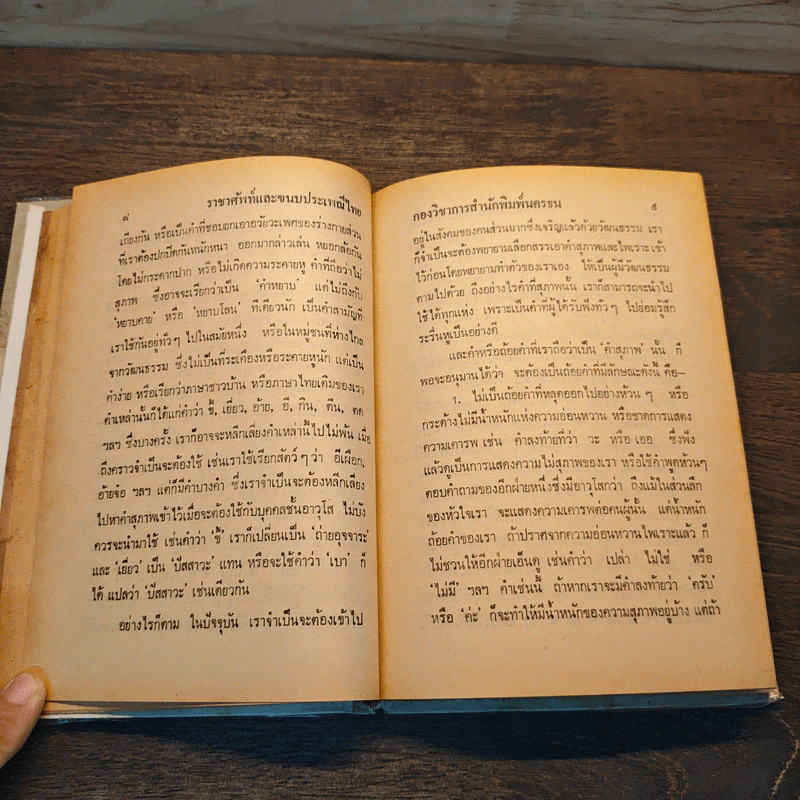 ๘ ราชาศัพท์และขนบประเพณีไทย
เถียงกัน หรือเป็นคำที่ชอบยกเอาอวัยวะเพศของร่างกายส่วน
ที่เราต้องปกปิดกันหนักหนา ออกมากล่าวเล่น หยอกล้อกัน
โดยไม่กระดากปาก หรือไม่เกิดความระคายหู คำที่ถือว่าไม่
สุภาพ ซึ่งอาจจะเรียกว่าเป็น 'คำหยาบ' แต่ไม่ถึงกับ
'หยาบคาย' หรือ 'หยาบโลน' ทีเดียวนัก เป็นคำสามัญที่
เราใช้กันอยู่ทั่วๆ ไปในสมัยหนึ่ง หรือในหมู่ชนที่ห่างไกล
จากวัฒนธรรม ซึ่งไม่เป็นที่ระเคืองหรือระคายหูนัก แต่เป็น
คำง่าย หรือเรียกว่าภาษาชาวบ้าน หรือภาษาไทยเดิมของเรา
คำเหล่านั้นก็ได้แก่คำว่า ขี้, เยี่ยว, อ้าย, อี, กิน, ตีน, ตด
ฯลฯ ซึ่งบางครั้ง เราก็อาจจะหลีกเลี่ยงคำเหล่านี้ไปไม่พ้น เมื่อ
ถึงคราวจำเป็นจะต้องใช้ เช่นเราใช้เรียกสัตว์ๆ ว่า อีเผือก,
อ้ายจ๋อ ฯลฯ แต่ก็มีคำบางคำ ซึ่งเราจำเป็นจะต้องหลีกเลี่ยง
ไปหาคำสุภาพเข้าไว้เมื่อจะต้องใช้กับบุคคลชั้นอาวุโส ไม่บัง
ควรจะนำมาใช้ เช่นคำว่า 'ขี้' เราก็เปลี่ยนเป็น 'ถ่ายอุจจาระ'
และ 'เยี่ยว' เป็น 'ปัสสาวะ' แทน หรือจะใช้คำว่า 'เบา' ก็
ได้ แปลว่า 'ปัสสาวะ' เช่นเดียวกัน
อย่างไรก็ตาม ในปัจจุบัน เราจำเป็นจะต้องเข้าไป
กองวิชาการสำนักพิมพ์นครธน ๙
อยู่ในสังคมของคนส่วนมากซึ่งเจริญแล้วด้วยวัฒนธรรม เรา
ก็จำเป็นจะต้องพยายามเลือกสรรเอาคำสุภาพและไพเราะเข้า
ไว้ก่อนโดยพยายามทำตัวของเราเอง ให้เป็นผู้มีวัฒนธรรม
ตามไปด้วย ถึงอย่างไรคำที่สุภาพนั้น เราก็สามารถจะนำไป
ใช้ได้ทุกแห่ง เพราะเป็นคำที่ผู้ได้รับฟังทั่วๆ ไปย่อมรู้สึก
ระรื่นหูเป็นอย่างดี
และคำหรือถ้อยคำที่เราถือว่าเป็น 'คำสุภาพ' นั้น ก็
พอจะอนุมานได้ว่า จะต้องเป็นถ้อยคำที่มีลักษณะดังนี้ คือ–
1. ไม่เป็นถ้อยคำที่หลุดออกไปอย่างห้วนๆ หรือ
กระด้างไม่มีน้ำหนักแห่งความอ่อนหวาน หรือขาดการแสดง
ความเคารพ เช่น คำลงท้ายที่ว่า วะ หรือ เออ ซึ่งฟัง
แล้วดูเป็นการแสดงความไม่สุภาพของเรา หรือใช้คำพูดห้วนๆ
ตอบคำถามของอีกฝ่ายหนึ่งซึ่งมีอาวุโสกว่า ถึงแม้ในส่วนลึก
ของหัวใจเรา จะแสดงความเคารพต่อคนผู้นั้น แต่น้ำหนัก
ถ้อยคำของเรา ถ้าปราศจากความอ่อนหวานไพเราะแล้ว ก็
ไม่ชวนให้อีกฝ่ายเอ็นดู เช่นคำว่า เปล่า ไม่ใช่ หรือ
'ไม่มี' ฯลฯ คำเช่นนี้ ถ้าหากเราจะมีคำลงท้ายว่า 'ครับ'
หรือ 'ค่ะ' ก็จะทำให้มีน้ำหนักของความสุภาพอยู่บ้าง แต่ถ้า